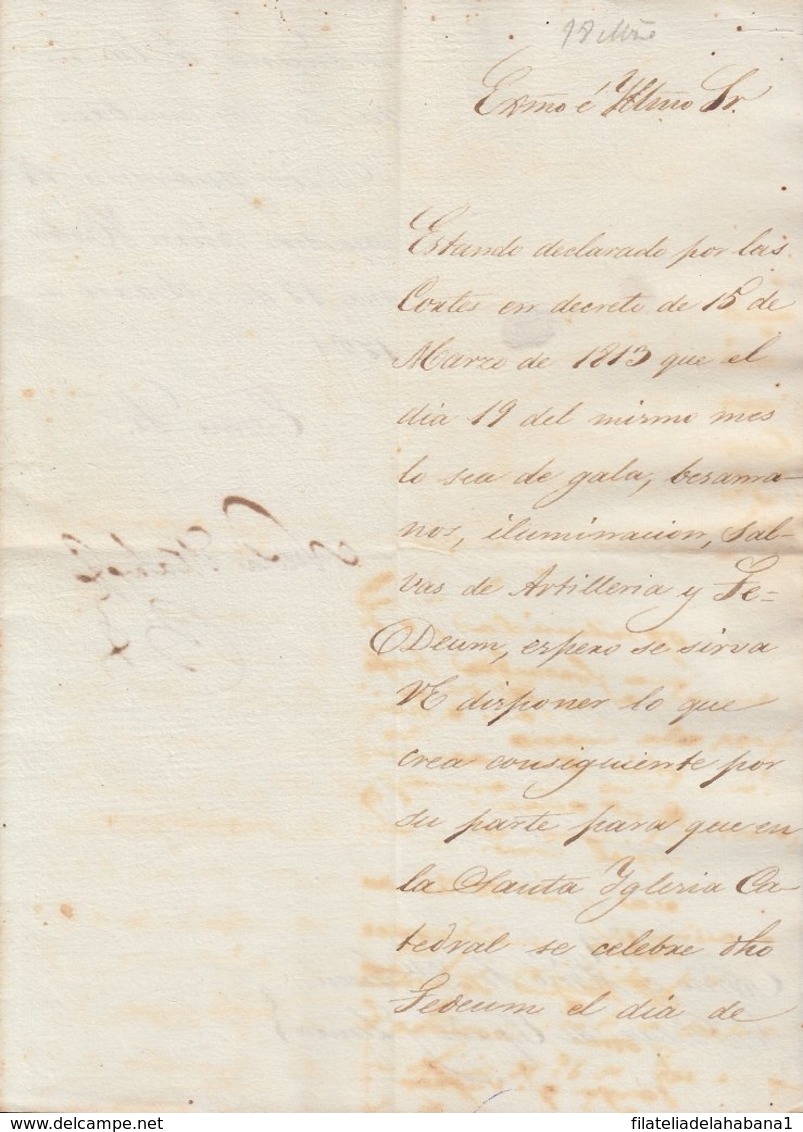 18 Mzo
Exmo é Yltmo Sr.
Estando declarado por las
Cortes en decreto de 15 de
Marzo de 1813 que el
dia 19 del mismo mes
lo sea de gala, besama-
nos, iluminacion, Sal-
vas de Artilleria y Te-
Deum, espero se sirva
VE disponer lo que
crea consiguiente por
su parte para que en
la Santa Yglesia Ca-
tedral se celebre dho
Tedeum el dia de
filateliadelahabana1